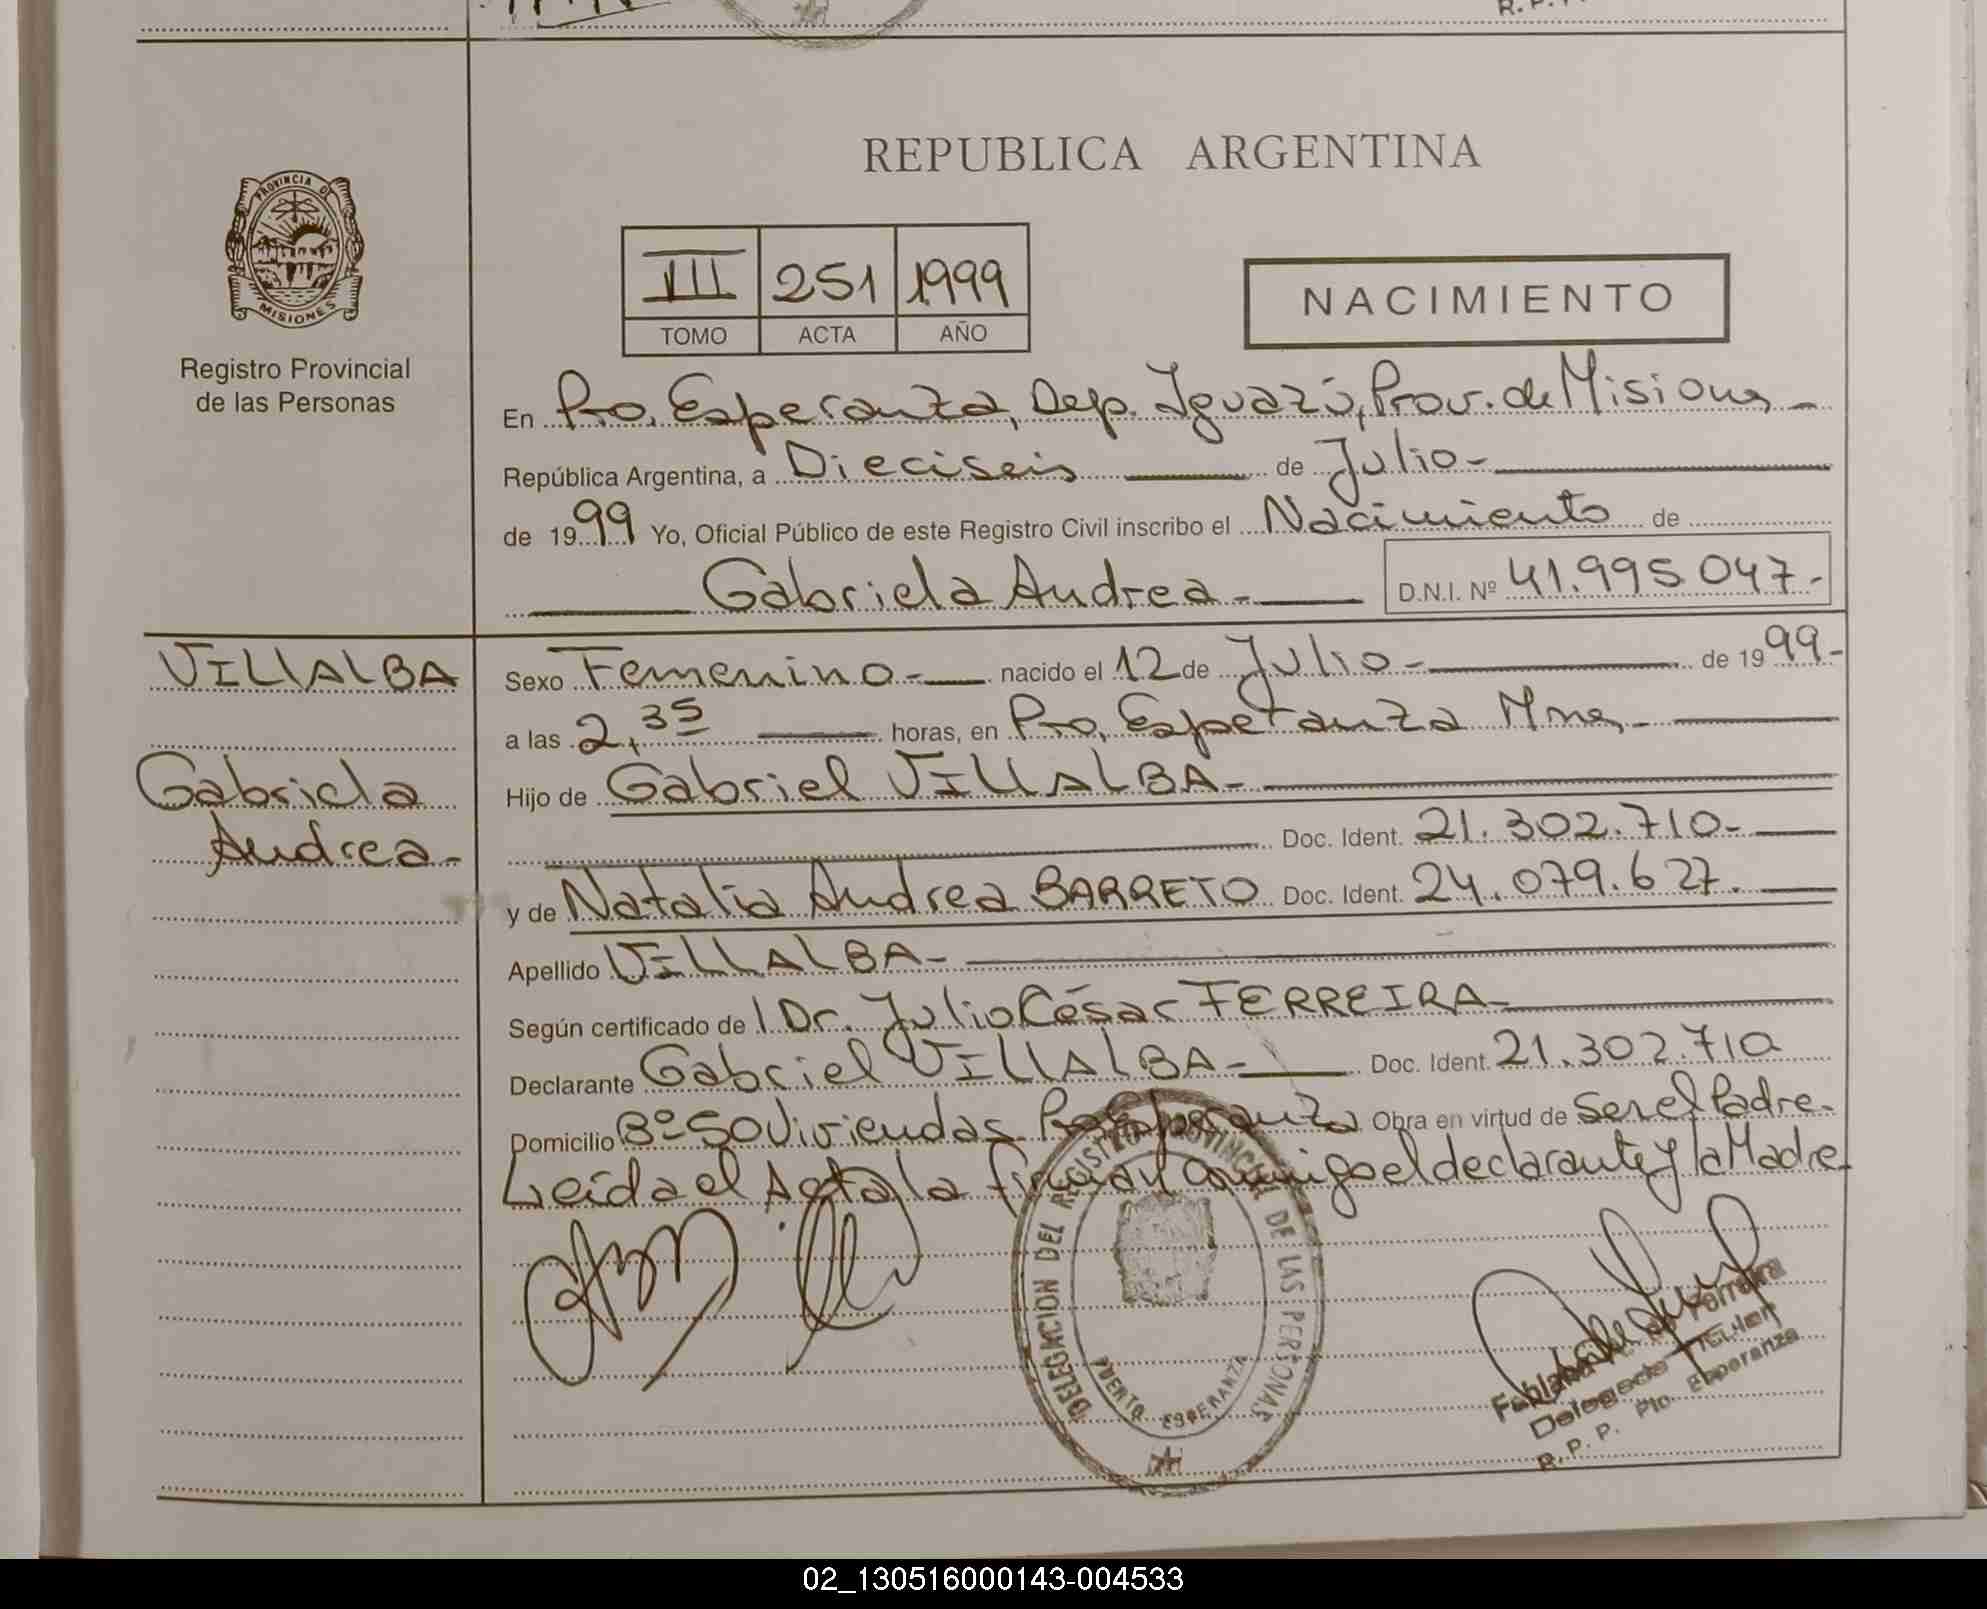 REPUBLICA ARGENTINA
PROVINCIA DE
MISIONES
Registro Provincial
de las Personas
III 251 1999
TOMO ACTA AÑO
NACIMIENTO
En Pto. Esperanza, Dep. Iguazú, Prov. de Misiones
República Argentina, a Dieciseis de Julio
de 1999 Yo, Oficial Público de este Registro Civil inscribo el Nacimiento de
Gabriela Andrea D.N.I. Nº 41.995.047.-
VILLALBA
Gabriela
Andrea
Sexo Femenino nacido el 12 de Julio de 1999
a las 2,35 horas, en Pto. Esperanza Mnes
Hijo de Gabriel VILLALBA
Doc. Ident. 21.302.710
y de Natalia Andrea BARRETO Doc. Ident. 24.079.627.
Apellido VILLALBA
Según certificado del Dr. Julio César FERREIRA
Declarante Gabriel VILLALBA Doc. Ident. 21.302.710
Domicilio Bº 50 Viviendas Pto Esperanza Obra en virtud de Ser el Padre.
Leída el Acta, la firman conmigo el declarante y la Madre
DELEGACION DEL REGISTRO PROVINCIAL DE LAS PERSONAS
PUERTO ESPERANZA
Ferreira
Delegada Titular
R. P. P. Pto. Esperanza
02_130516000143-004533